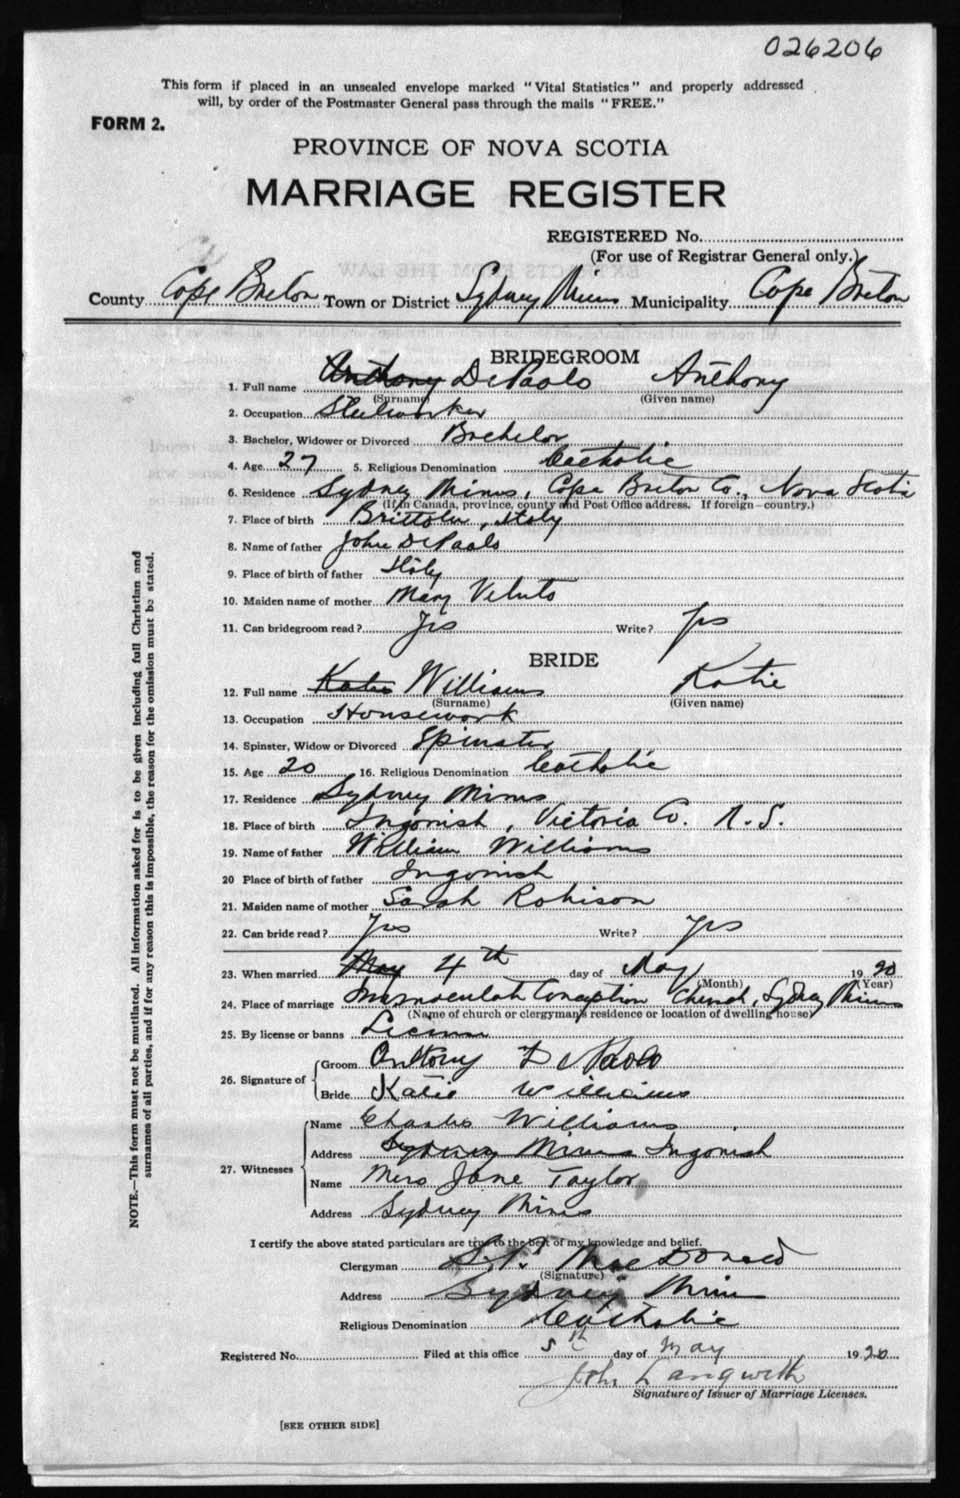 026206
This form if placed in an unsealed envelope marked "Vital Statistics" and properly addressed
will, by order of the Postmaster General pass through the mails "FREE."
FORM 2.
PROVINCE OF NOVA SCOTIA
MARRIAGE REGISTER
REGISTERED No.
(For use of Registrar General only.)
County Cape Breton Town or District Sydney Mines Municipality Cape Breton
BRIDEGROOM
1. Full name Anthony DePaolo Anthony
(Surname) (Given name)
2. Occupation Steelworker
3. Bachelor, Widower or Divorced Bachelor
4. Age 27 5. Religious Denomination Catholic
6. Residence Sydney Mines, Cape Breton Co., Nova Scotia
(If in Canada, province, county and Post Office address. If foreign—country.)
7. Place of birth Italy
8. Name of father John DePaolo
9. Place of birth of father Italy
10. Maiden name of mother Mary
11. Can bridegroom read? Yes Write? Yes
BRIDE
12. Full name Katie Williams Katie
(Surname) (Given name)
13. Occupation Housework
14. Spinster, Widow or Divorced Spinster
15. Age 20 16. Religious Denomination Catholic
17. Residence Sydney Mines
18. Place of birth Ingonish, Victoria Co. N.S.
19. Name of father William Williams
20 Place of birth of father Ingonish
21. Maiden name of mother Sarah Robison
22. Can bride read? Yes Write? Yes
23. When married May 4th day of May 1920
(Month) (Year)
24. Place of marriage Immaculate Conception Church, Sydney Mines
(Name of church or clergyman's residence or location of dwelling house)
25. By license or banns License
26. Signature of Groom Anthony De Paolo
Bride Katie Williams
27. Witnesses Name Charles Williams
Address Sydney Mines Ingonish
Name Mrs Jane Taylor
Address Sydney Mines
I certify the above stated particulars are true to the best of my knowledge and belief.
Clergyman MacDonald
(Signature)
Address Sydney Mines
Religious Denomination Catholic
Registered No. Filed at this office 5th day of May 1920
John Langwith
Signature of Issuer of Marriage Licenses.
[SEE OTHER SIDE]
NOTE.—This form must not be mutilated. All information asked for is to be given including full Christian and
surnames of all parties, and if for any reason this is impossible, the reason for the omission must be stated.